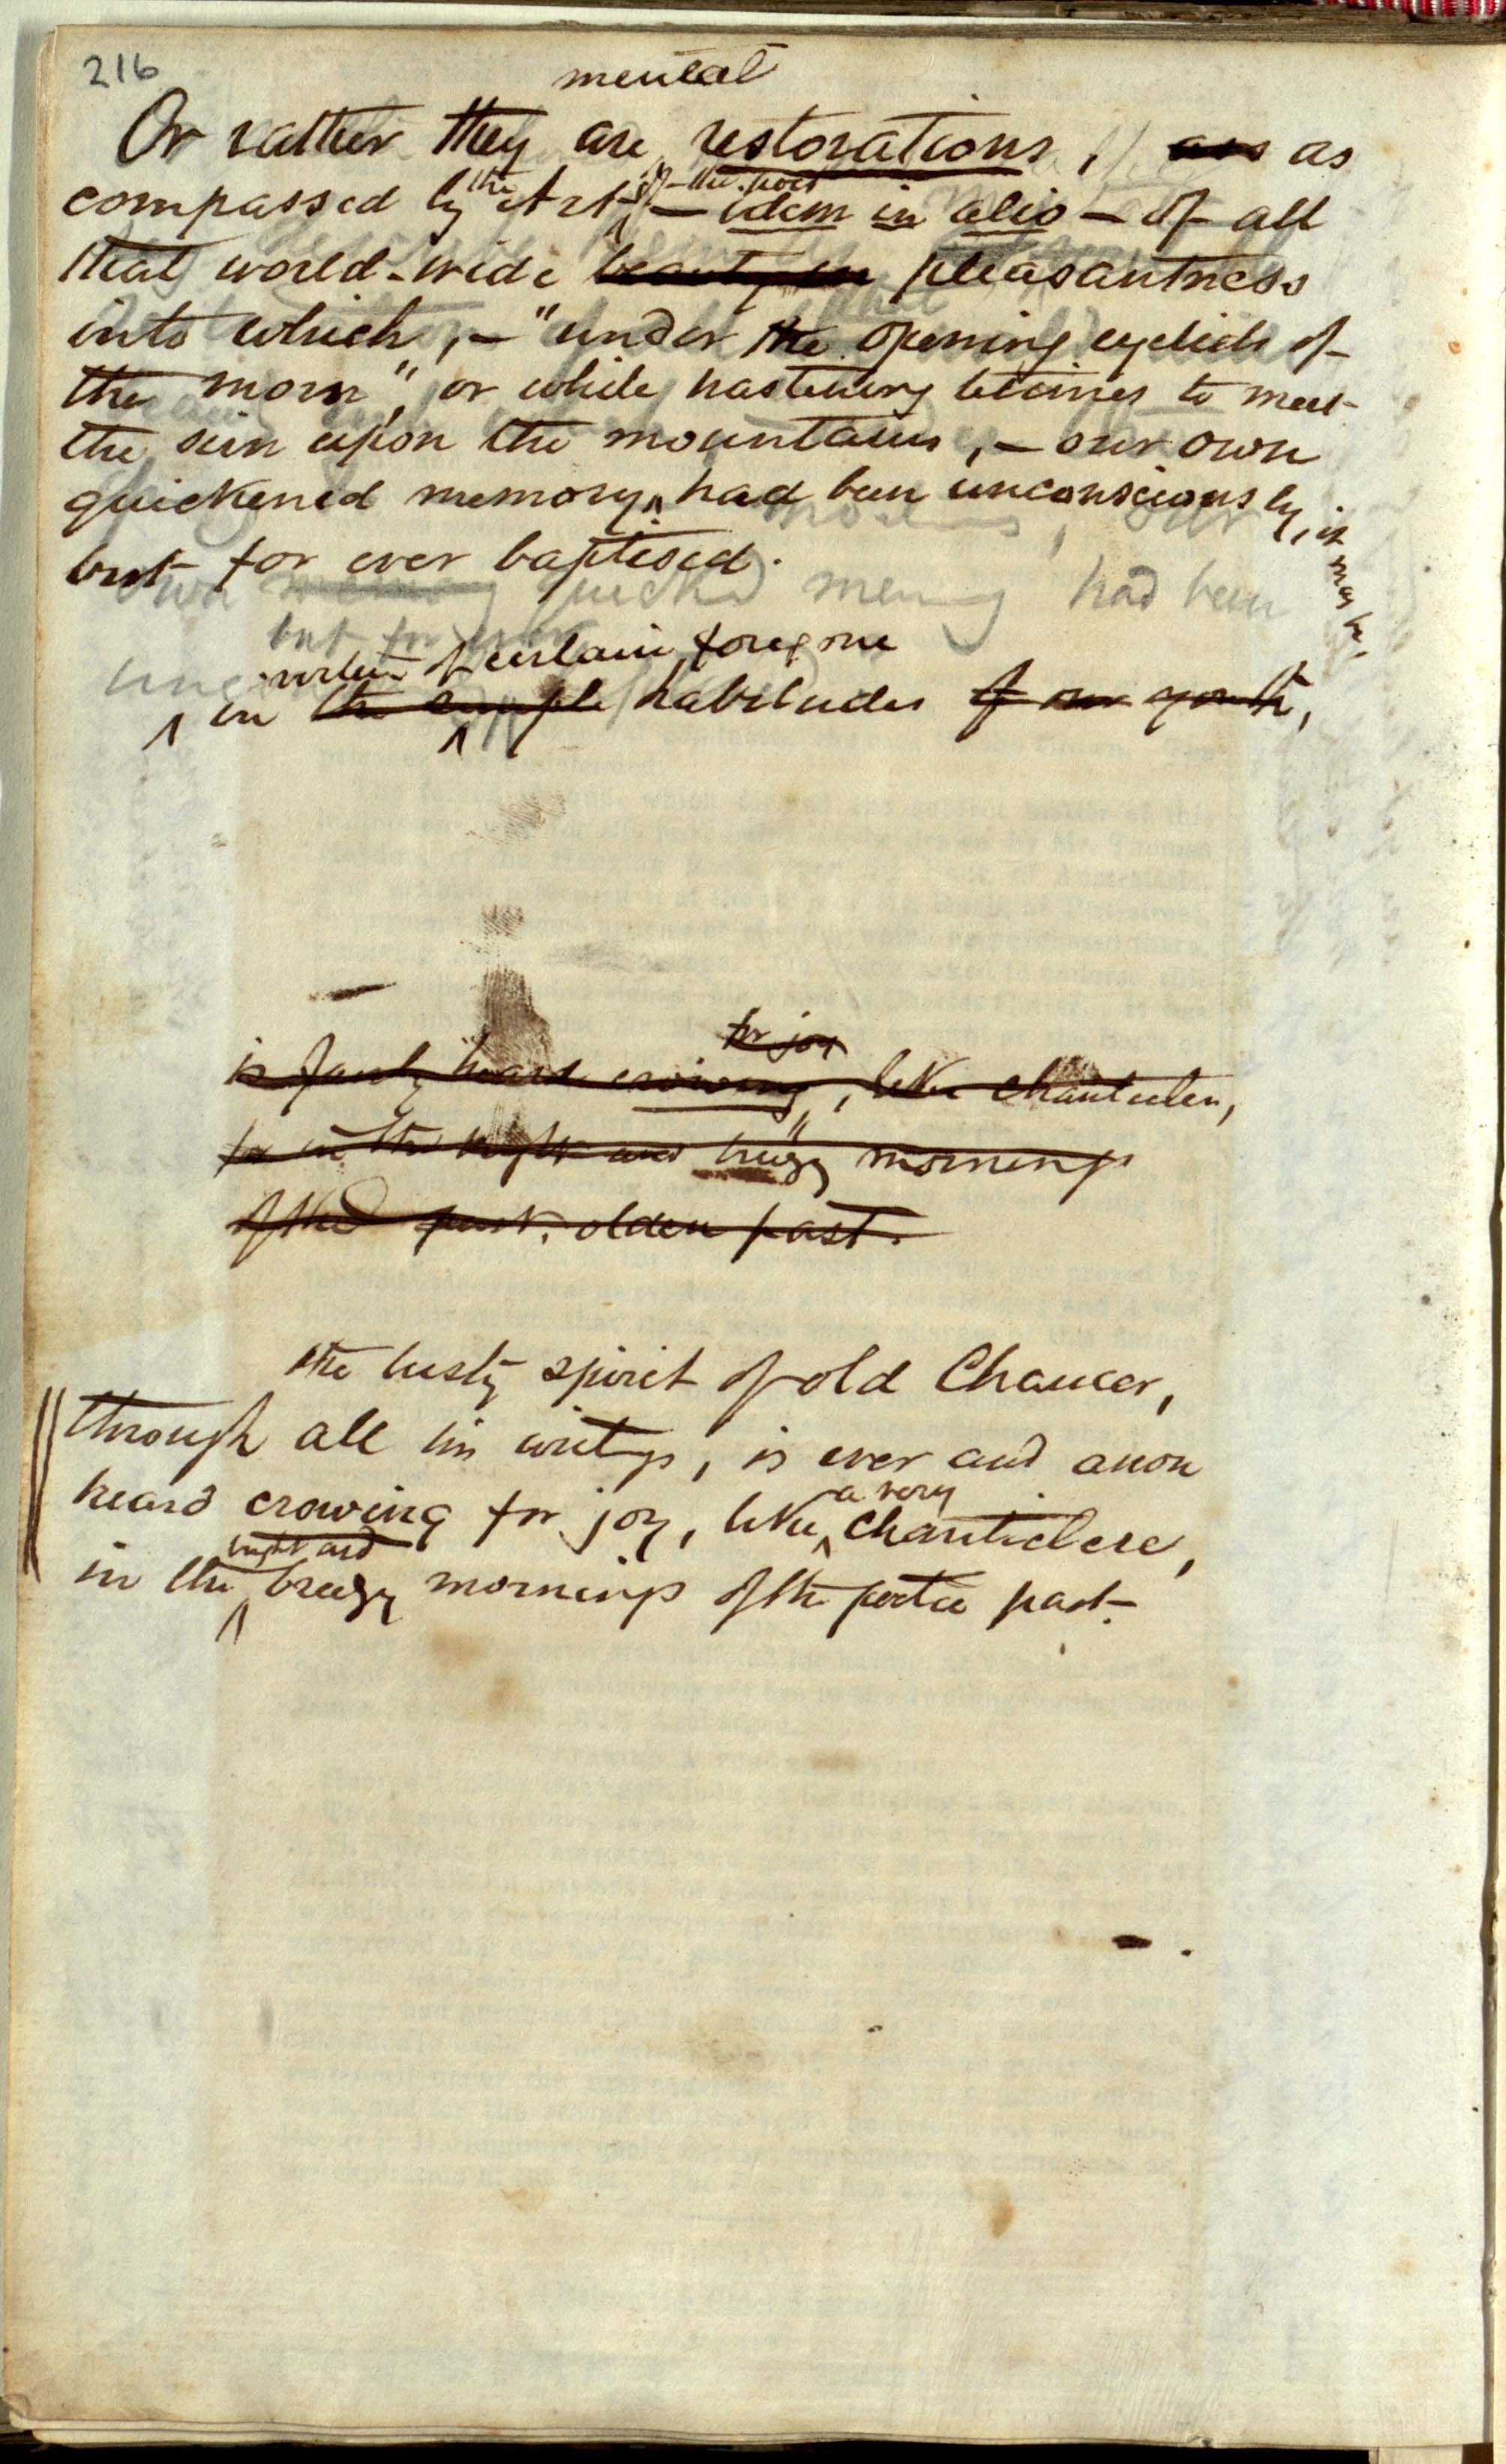 216
mental
Or rather they are restorations, as as
compassed by the Art of the poet — idem in alio — of all
that world-wide beauty pleasantness
into which, — "under the opening eyelids of
the morn", or while hastening betimes to meet
the sun upon the mountains, — our own
quickened memory had been unconsciously, it may be,
but for ever baptised.
own memory quicked memory had been
but for ever
of certain foregone
in the simple habitudes of our youth,
for joy
is heard crowing, like chanticleer,
in the bright and breezy mornings
of the past. olden past.
the lusty spirit of old Chaucer,
through all his writings, is ever and anon
heard crowing for joy, like a very chanticlere,
in the bright and breezy mornings of the poetic past.